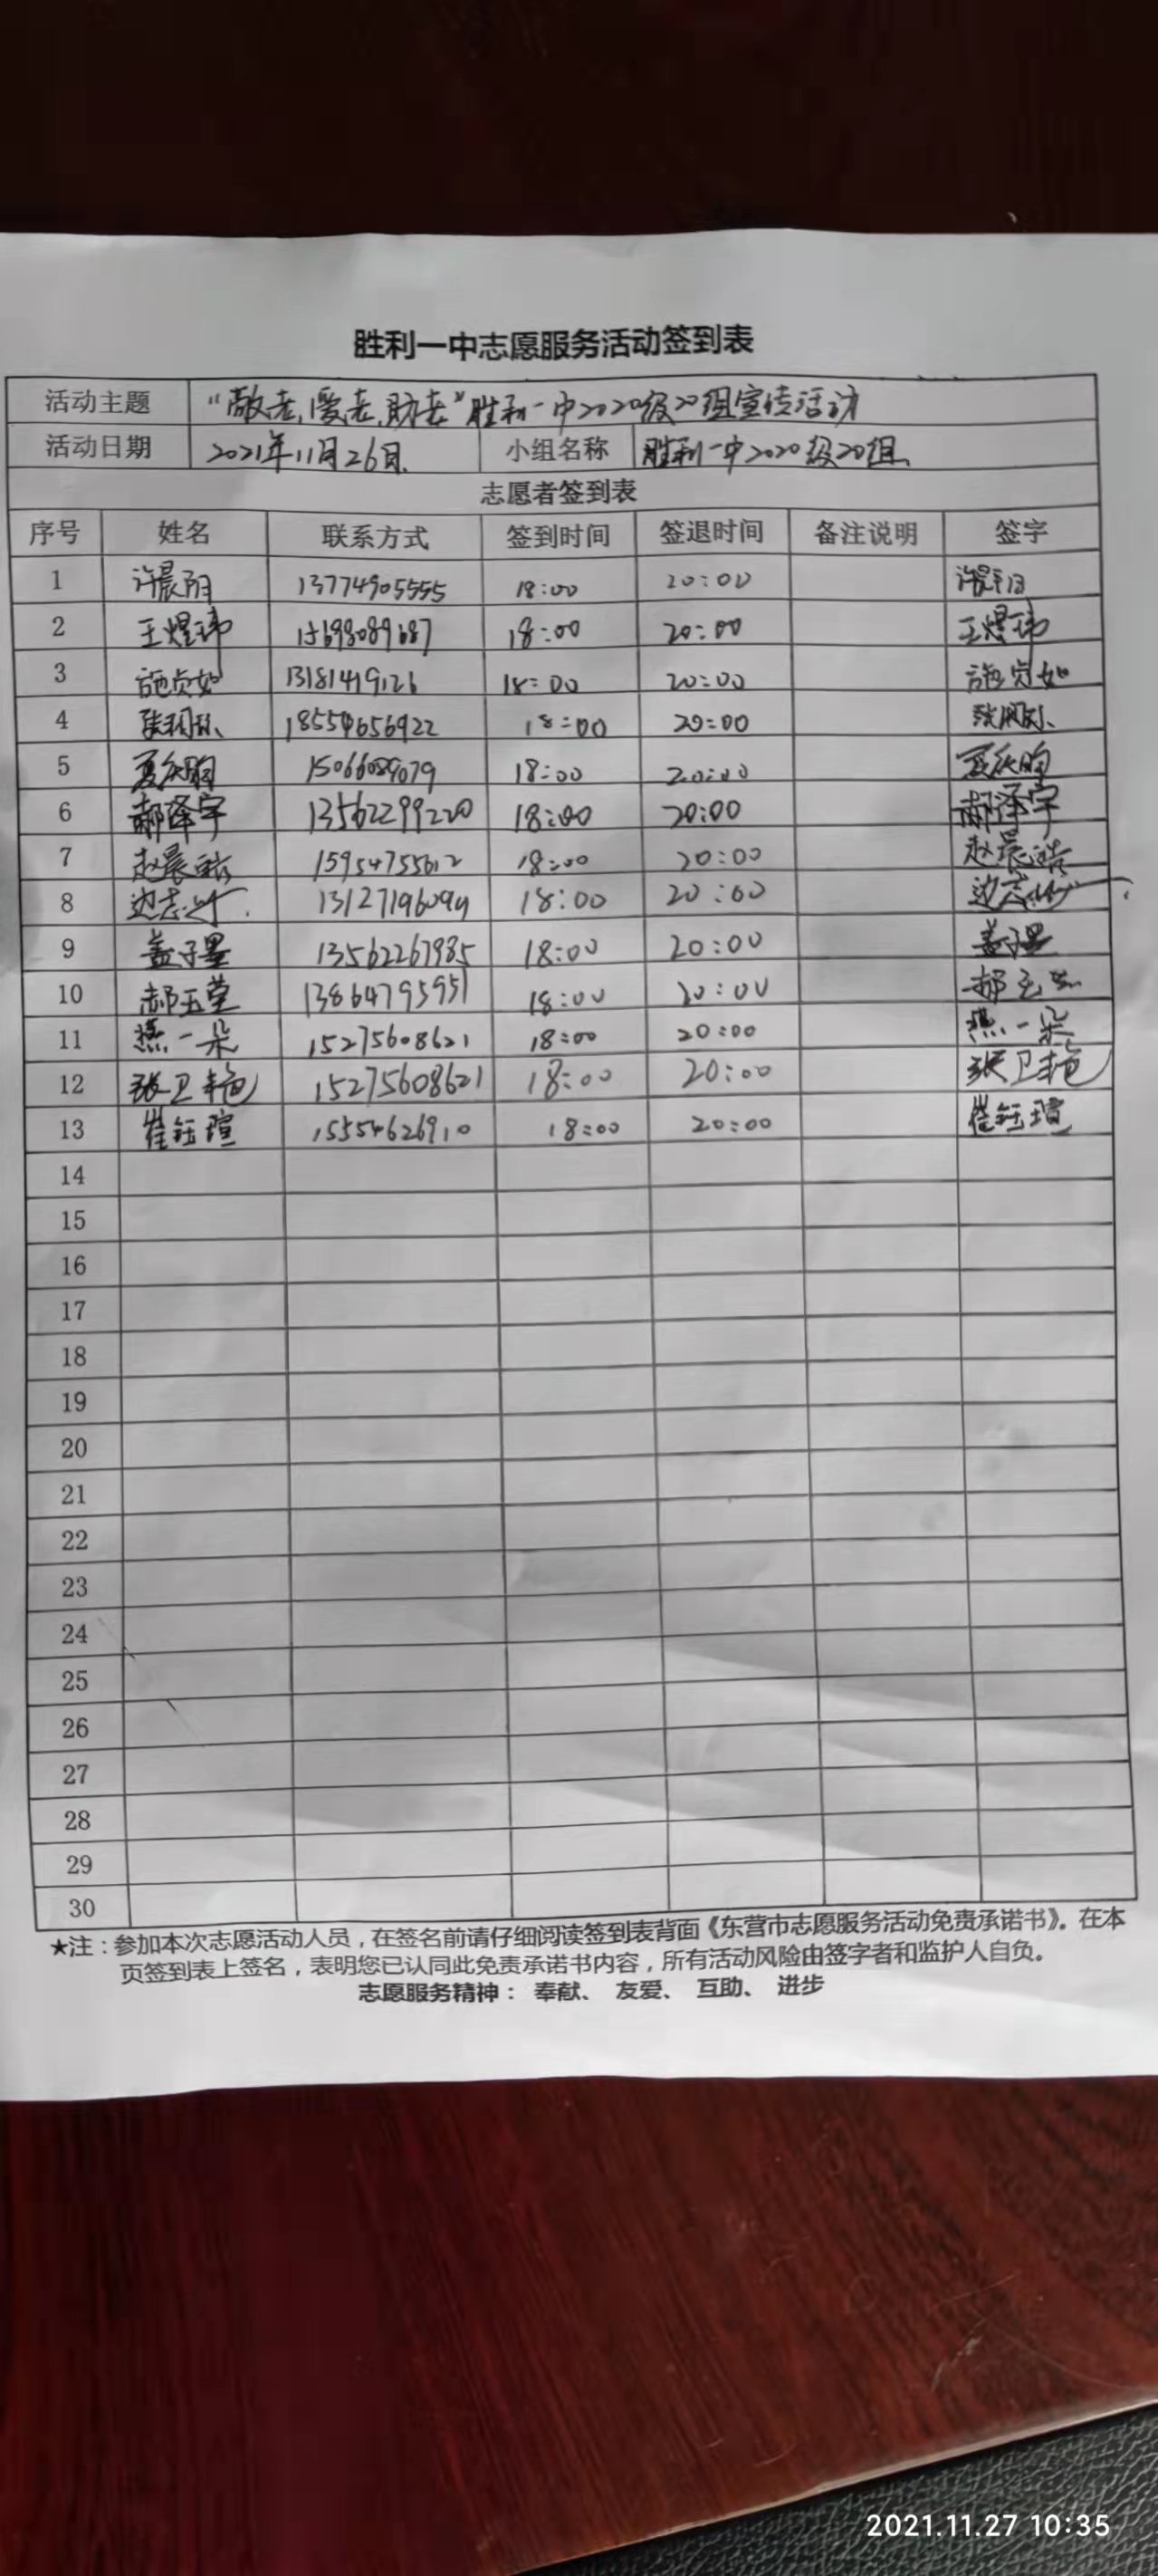 胜利一中志愿服务活动签到表
活动主题 “敬老,爱老,助老”胜利一中2020级20组宣传活动
活动日期 2021年11月26日. 小组名称 胜利一中2020级20组
志愿者签到表
序号 姓名 联系方式 签到时间 签退时间 备注说明 签字
1 许晨阳 13774905555 18:00 20:00 许晨阳
2 王煜玮 15698089687 18:00 20:00 王煜玮
3 施贞如 13181419126 18:00 20:00 施贞如
4 18554656922 18:00 20:00
5 15066089079 18:00 20:00
6 郝泽宇 13562299220 18:00 20:00 郝泽宇
7 赵晨皓 15954755612 18:00 20:00 赵晨浩
8 边志 13127196094 18:00 20:00 边志
9 盖子墨 13562267985 18:00 20:00 盖子墨
10 郝玉莹 13864795951 18:00 20:00 郝玉莹
11 燕一朵 15275608621 18:00 20:00 燕一朵
12 张卫艳 15275608621 18:00 20:00 张卫艳
13 崔钰瑄 15554626910 18:00 20:00 崔钰瑄
14
15
16
17
18
19
20
21
22
23
24
25
26
27
28
29
30
★注：参加本次志愿活动人员，在签名前请仔细阅读签到表背面《东营市志愿服务活动免责承诺书》。在本
页签到表上签名，表明您已认同此免责承诺书内容，所有活动风险由签字者和监护人自负。
志愿服务精神： 奉献、 友爱、 互助、 进步
2021.11.27 10:35